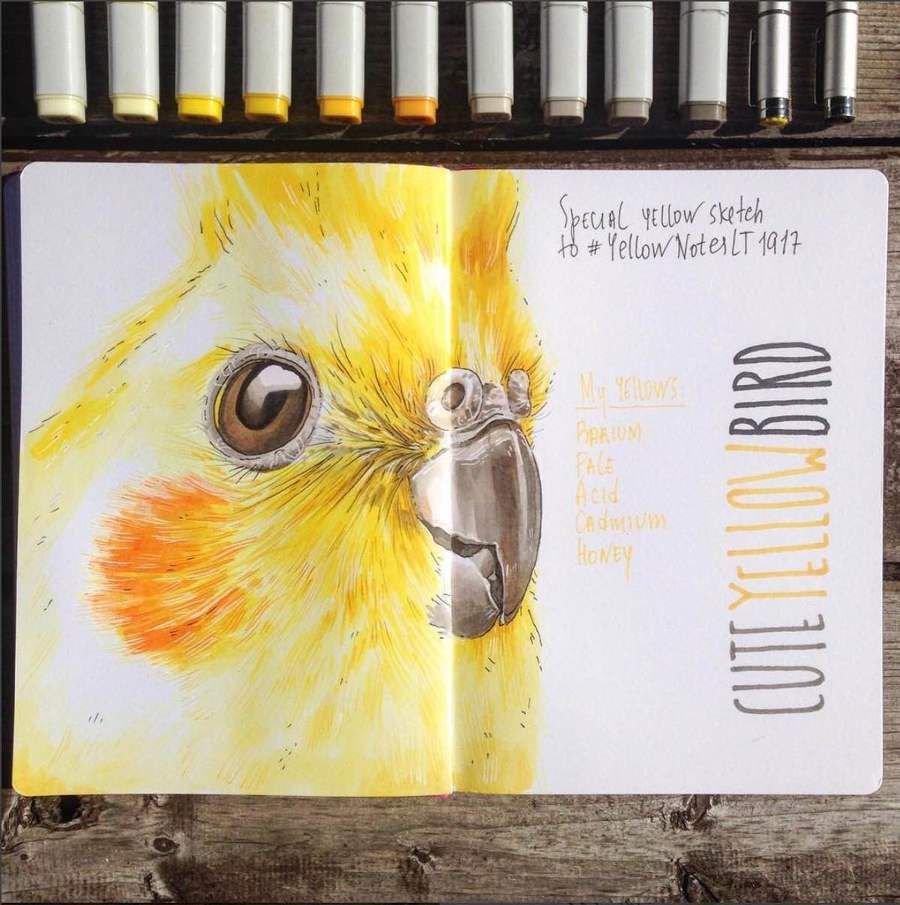 Special yellow sketch
to #YellowNotesLT1917
My Yellows:
Barium
Pale
Acid
Cadmium
Honey
CUTE YELLOW BIRD